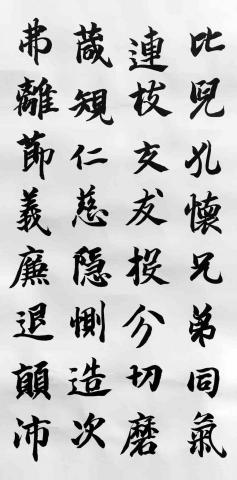 比兒孔懷兄弟同氣
連枝交友投分切磨
箴規仁慈隱惻造次
弗離節義廉退顛沛